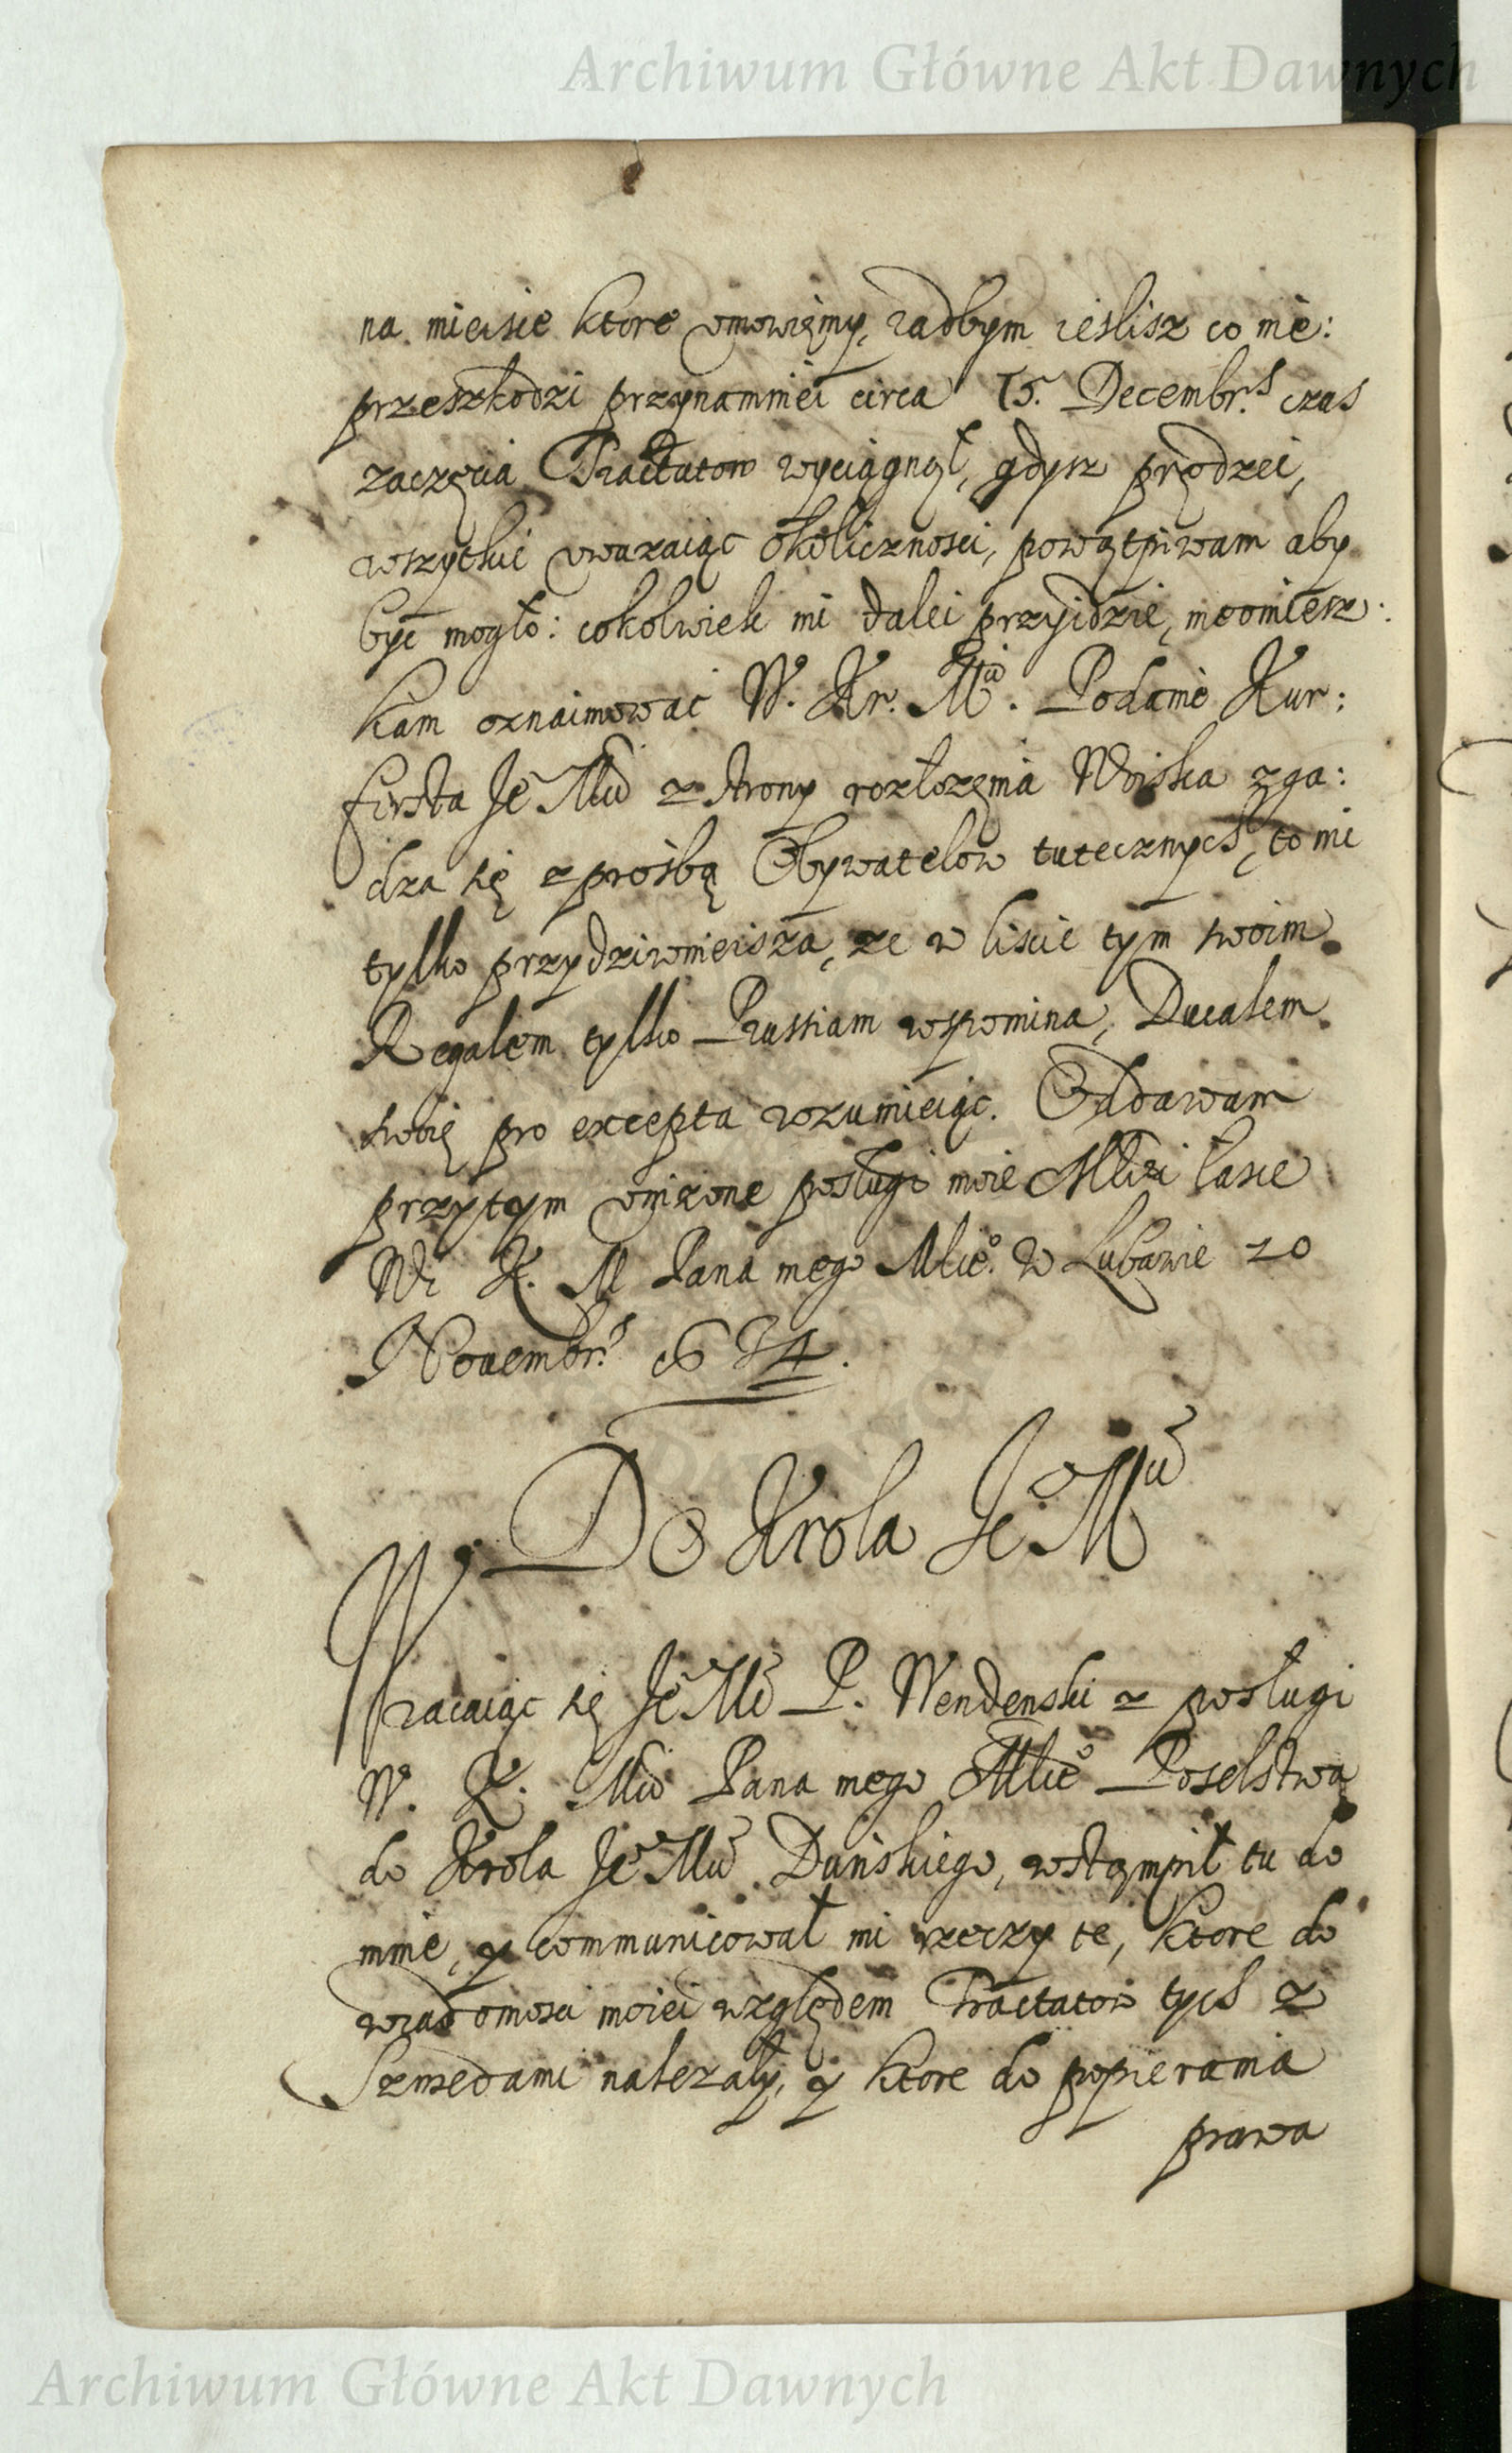 Archiwum Główne Akt Dawnych
na mieisce ktore vmowięmy, radbym ieslisz co nie:
przeszkodzi przynamniei circa 15. Decembr.s czas
zaczęcia Tractatow wyciągnął, gdysz prędzei,
wszytkie vwazaiąc okolicznosci, powątpiwam aby
być mogło: cokolwiek mi dalei przyidzie, nieomiesz:
kam oznaimować W. Kr. Mci. Podanie Kur:
firsta Je Mci z strony rozłozęnia Woiska zga:
dza się z prośbą Obywatelow tutecznych, to mi
tylko przydziwnieisza, ze w liscie tym swoim
Regalem tylko Prussiam wspomina, Ducalem
swoię pro excepta rozumieiąc. Oddawam
przytym vnizone posługi moie Młci łasce
W. K. M Pana mego Młcio. W Lubawie 20
Novembr.s 634.
Do Krola Je Mci
Wracaiąc się Je Mć P. Wendenski z posługi
W. K. Mci Pana mego Młcio Poselstwa
do Krola Je Mci Dunskiego, wstąmpił tu do
mnie, y communicował mi rzeczy te, ktore do
wiadomosci moiei względem Tractatow tych z
Szwedami nalezały, y ktore do popierania
prawa
Archiwum Główne Akt Dawnych